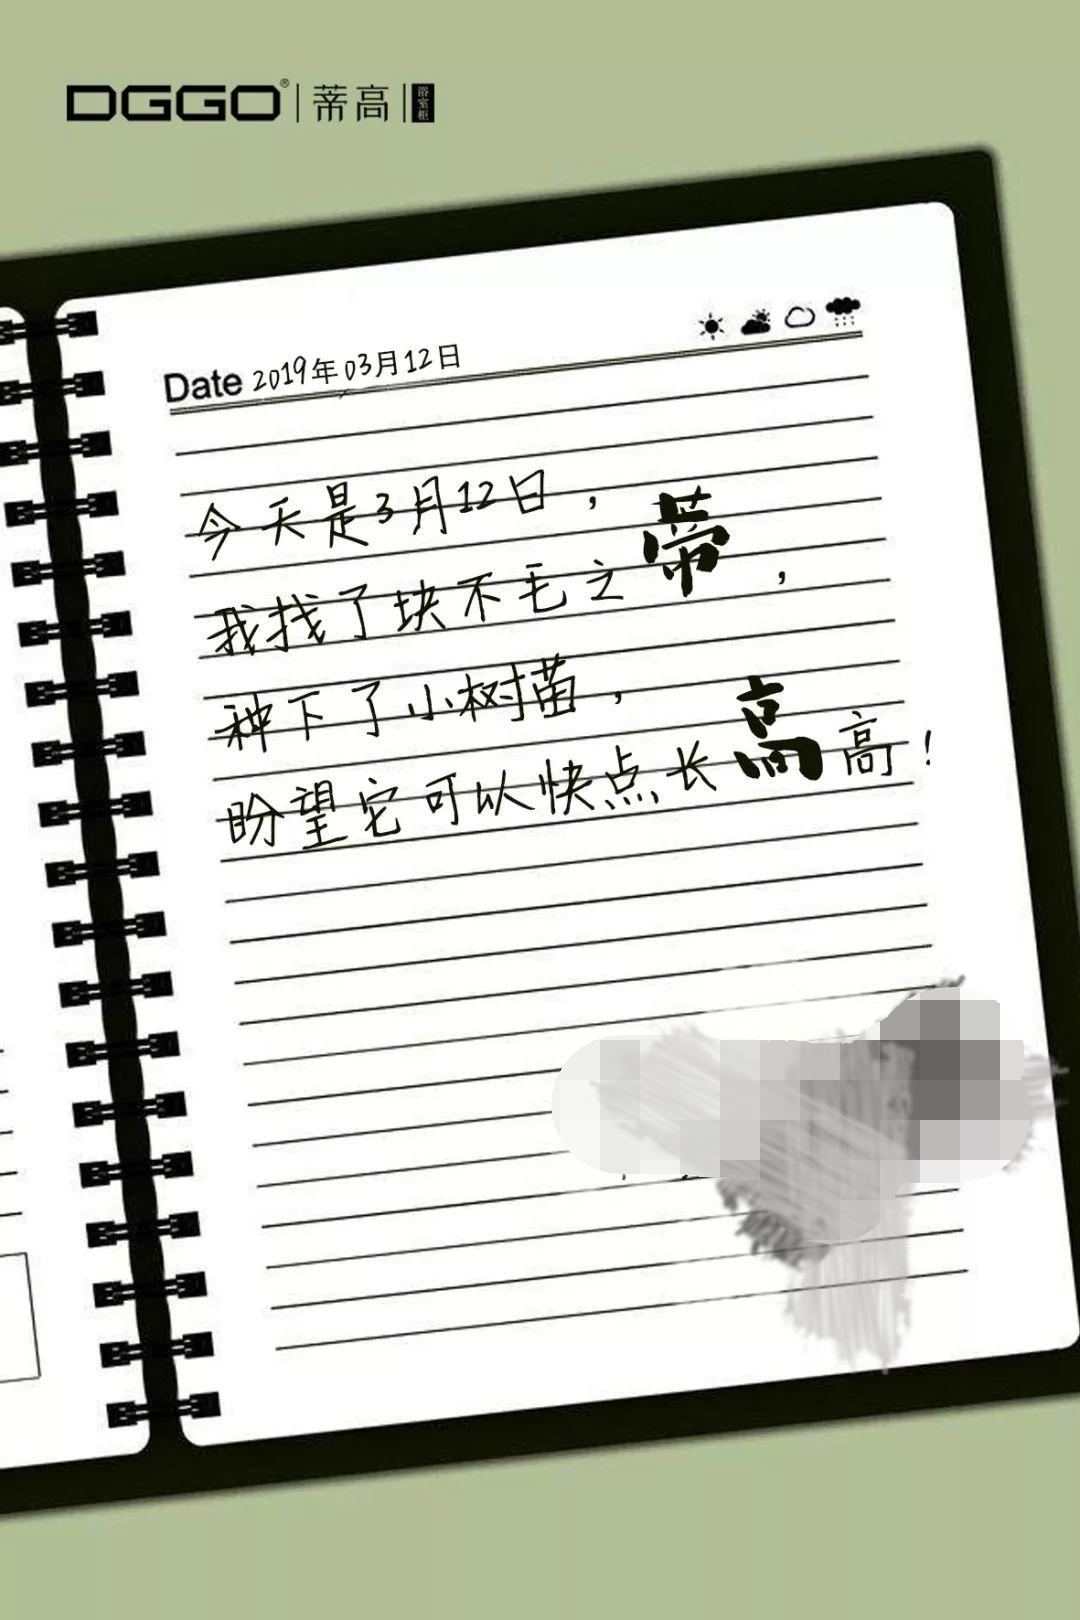 DGGO® 蒂高 浴室柜
Date 2019年03月12日
今天是3月12日，
我找了块不毛之蒂，
种下了小树苗，
盼望它可以快点长高高！